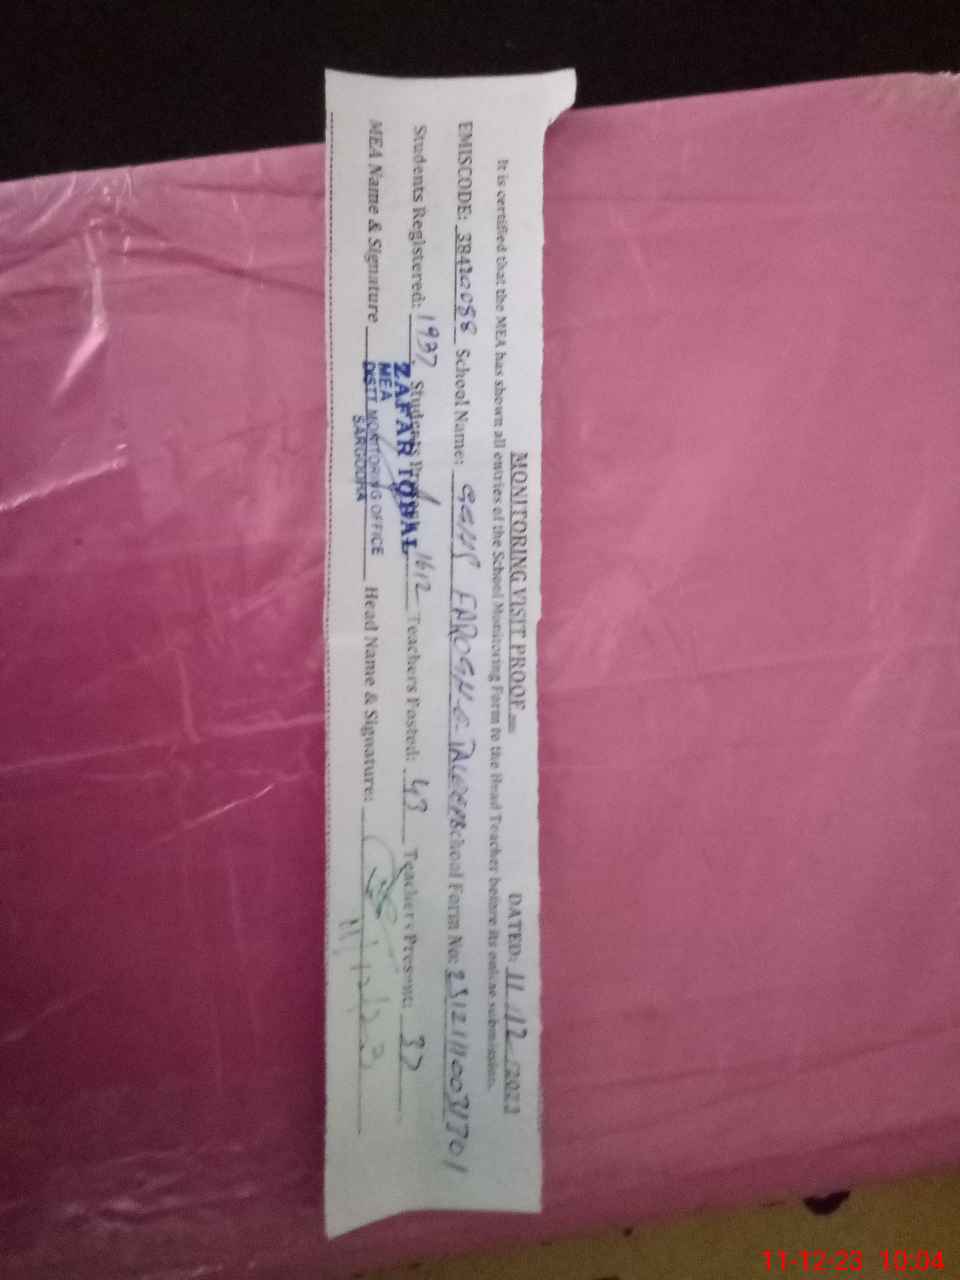 MONITORING VISIT PROOF DATED: 11/12/2023
It is certified that the MEA has shown all entries of the School Monitoring Form to the Head Teacher before its online submission.
EMISCODE: 38420088 School Name: School Form No:
Students Registered: 1937 Students Present: 1612 Teachers Posted: 43 Teachers Present: 37
MEA Name & Signature Head Name & Signature:
ZAFAR IQBAL
MEA
DISTT MONITORING OFFICE
SARGODHA
11/12/23
11-12-23 10:04